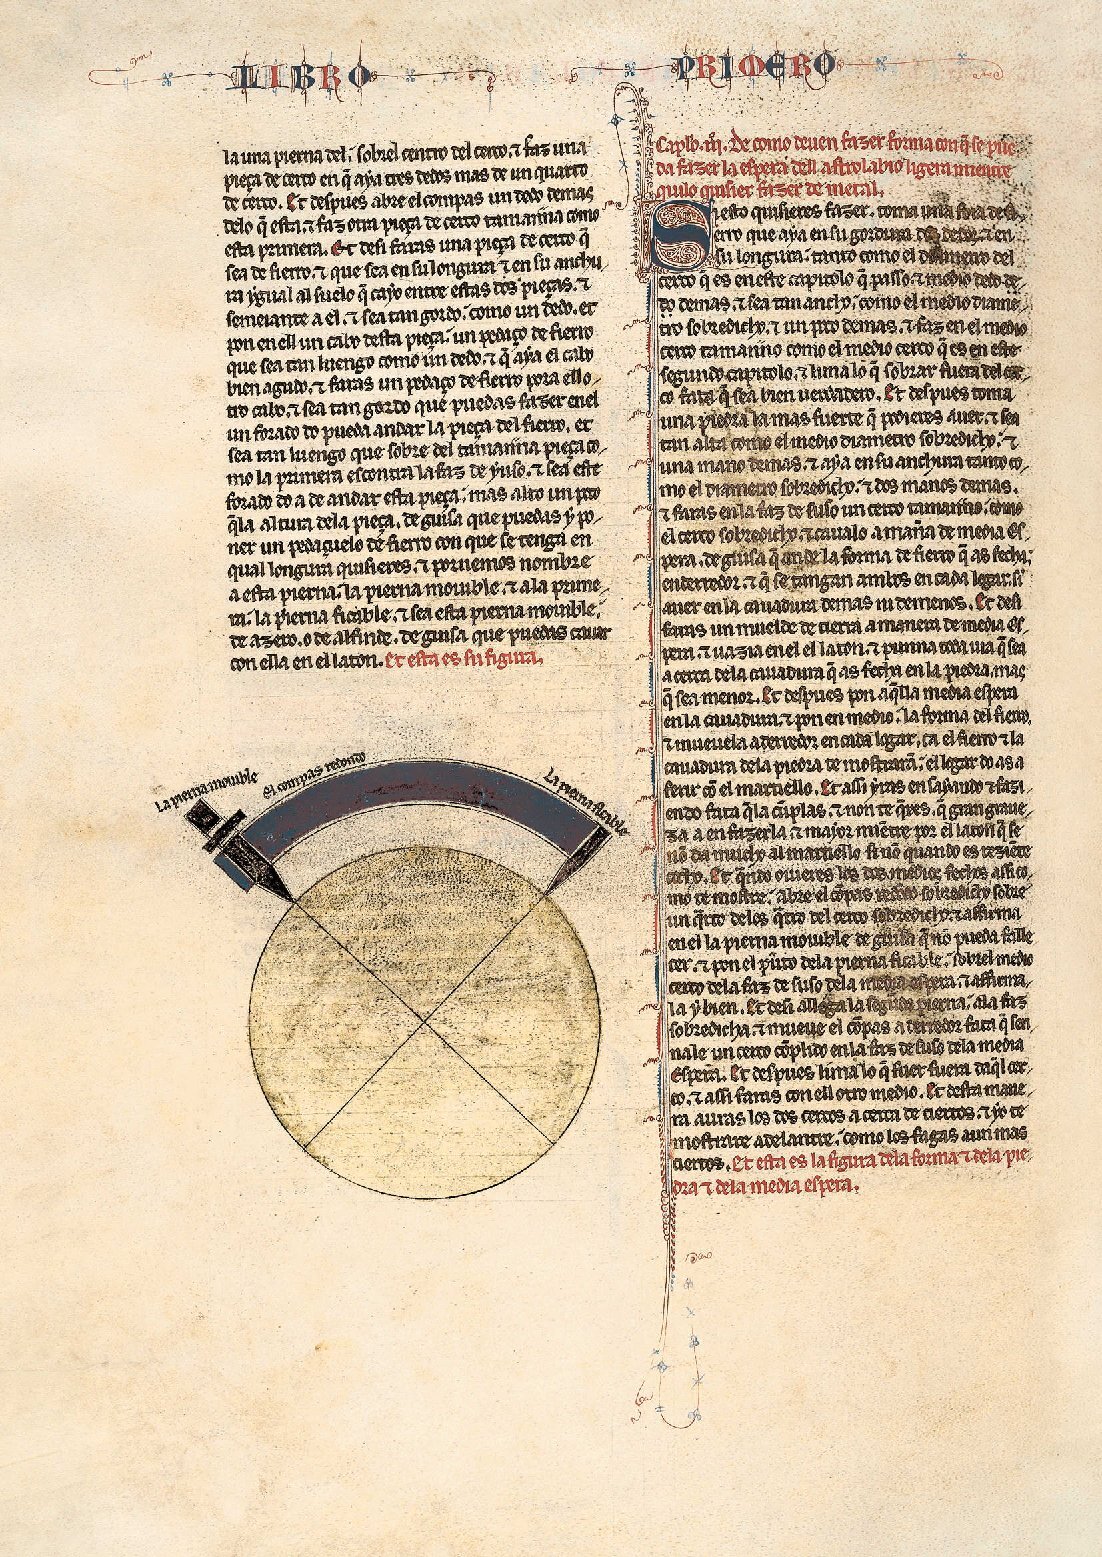 LIBRO PRIMERO
la una pierna del; sobrel centro del cerco. ⁊ faz una
pieça de cerco en q̃ aya tres dedos mas de un quarto
de cerco. Et despues abre el compas un dedo demas
delo q̃ esta. ⁊ faz otra pieça de cerco tamanna como
esta primera. Et desi faras una pieça de cerco q̃
sea de fierro. ⁊ que sea en su longura ⁊ en su anchu
ra ygual al suelo q̃ cayo entre estas dos pieças. ⁊
semeiante a el. ⁊ sea tan gordo; como un dedo. et
pon en ell un cabo desta pieça; un pedaço de fierro
que sea tan luengo como un dedo. ⁊ q̃ aya el cabo
bien agudo. ⁊ faras un pedaço de fierro pora ell o
tro cabo. ⁊ sea tan gordo que puedas fazer en el
un forado do pueda andar la pieça del fierro. et
sea tan luengo que sobre del tamanna pieça co
mo la primera escontra la faz de yuso. ⁊ sea este
forado do a de andar esta pieça; mas alto un poco
q̃ la altura dela pieça. de guisa que puedas y po
ner un pedaçuelo de fierro con que se tenga en
qual longura quisieres. ⁊ pornemos nombre
a esta pierna; la pierna mouible. ⁊ ala prime
ra; la pierna ficable. ⁊ sea esta pierna mouible;
de azero. o de alfinde. de guisa que puedas cauar
con ella en el laton. Et esta es su figura.
La pierna mouible
El compas redondo
La pierna ficable
Caplo. iij. De como deuen fazer forma con q̃ se pue
da fazer la espera dell astrolabio ligera miente
qui lo quisier fazer de metal.
Si esto quisieres fazer. toma una foia de fi
erro que aya en su gordura dos dedos. ⁊ en
su longura; tanto como el diametro del
cerco q̃ es en este capitolo q̃ passo. ⁊ medio dedo de
do demas. ⁊ sea tan ancho; como el medio diame
tro sobredicho. ⁊ un poco demas. ⁊ faz en el medio
cerco tamanno como el medio cerco q̃ es en este
segundo capitolo. ⁊ lima lo q̃ sobrar fuera del cer
co fata q̃ sea bien uerdadero. Et despues toma
una piedra la mas fuerte q̃ podieres auer. ⁊ sea
tan alta como el medio diametro sobredicho. ⁊
una mano demas. ⁊ aya en su anchura tanto co
mo el diametro sobredicho. ⁊ dos manos demas.
⁊ faras en la faz de suso un cerco tamanno; como
el cerco sobredicho. ⁊ caualo a mañra de media es
pera. de guisa q̃ ande la forma de fierro q̃ as fecha;
enderredor. ⁊ q̃ se tangan ambos en cada logar. si
auer en la cauadura demas ni demenos. Et desi
faras un muelde de tierra a manera de media es
pera. ⁊ uazia en el el laton. ⁊ punna toda uia q̃ sea
a cerca dela cauadura q̃ as fecha en la piedra. mas
q̃ sea menor. Et despues pon aq̃lla media espera
en la cauadura. ⁊ pon en medio; la forma del fierro.
⁊ mueuela aderredor en cada logar. ca el fierro ⁊ la
cauadura dela piedra te mostraran; el logar do as a
ferir cõ el martiello. Et assi yras ensayando ⁊ fazi
endo fata q̃ la cũplas. ⁊ non te q̃xes. q̃ gran graue
za a en fazerla. ⁊ mayor miẽtre por el laton q̃ se
nõ da mucho al martiello si nõ quando es reziẽte
cocho. Et q̃ndo ouieres los dos medios fechos assi co
mo te mostre; abre el cõpas redõdo sobredicho sobre
un q̃rto delos q̃tro del cerco sobredicho. ⁊ affirma
en el la pierna mouible de guisa q̃ nõ pueda falle
cer. ⁊ pon el pũto dela pierna ficable; sobrel medio
cerco dela faz de suso dela media espera. ⁊ affirma
la y bien. Et desi allega la segũda pierna; ala faz
sobredicha. ⁊ mueue el cõpas a derredor fata q̃ sen
nale un cerco cõplido en la faz de suso dela media
espera. Et despues lima lo q̃ fuer fuera daq̃l cer
co. ⁊ assi faras con ell otro medio. Et desta mane
ra auras los dos cercos a cerca de ciertos. ⁊ yo te
mostrare adelantre; como los fagas aun mas
ciertos. Et esta es la figura dela forma ⁊ dela pie
dra ⁊ dela media espera.